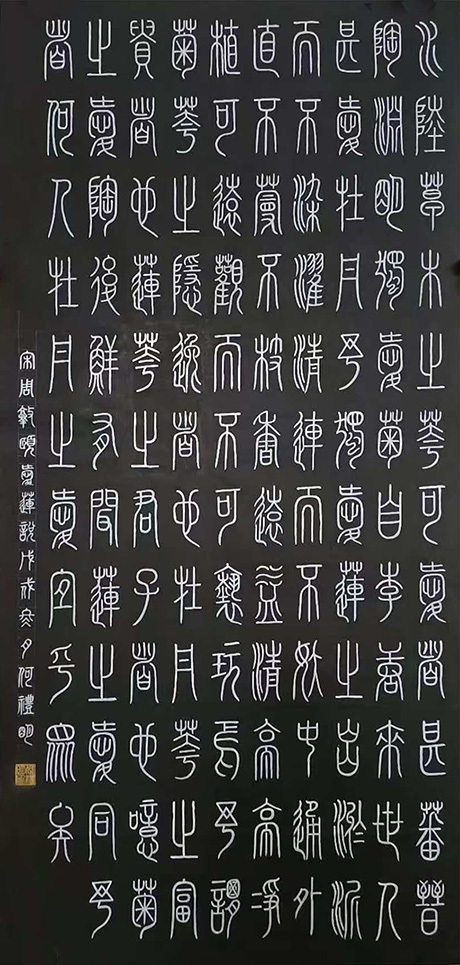 水陸草木之華可愛者甚蕃晉
陶淵明獨愛菊自李唐來世人
甚愛牡丹予獨愛蓮之出淤泥
而不染濯清漣而不妖中通外
直不蔓不枝香遠益清亭亭淨
植可遠觀而不可褻玩焉予謂
菊華之隱逸者也牡丹華之富
貴者也蓮華之君子者也噫菊
之愛陶後鮮有聞蓮之愛同予
者何人牡丹之愛宜乎眾矣
宋周敦頤愛蓮說戊戌冬月何禮明